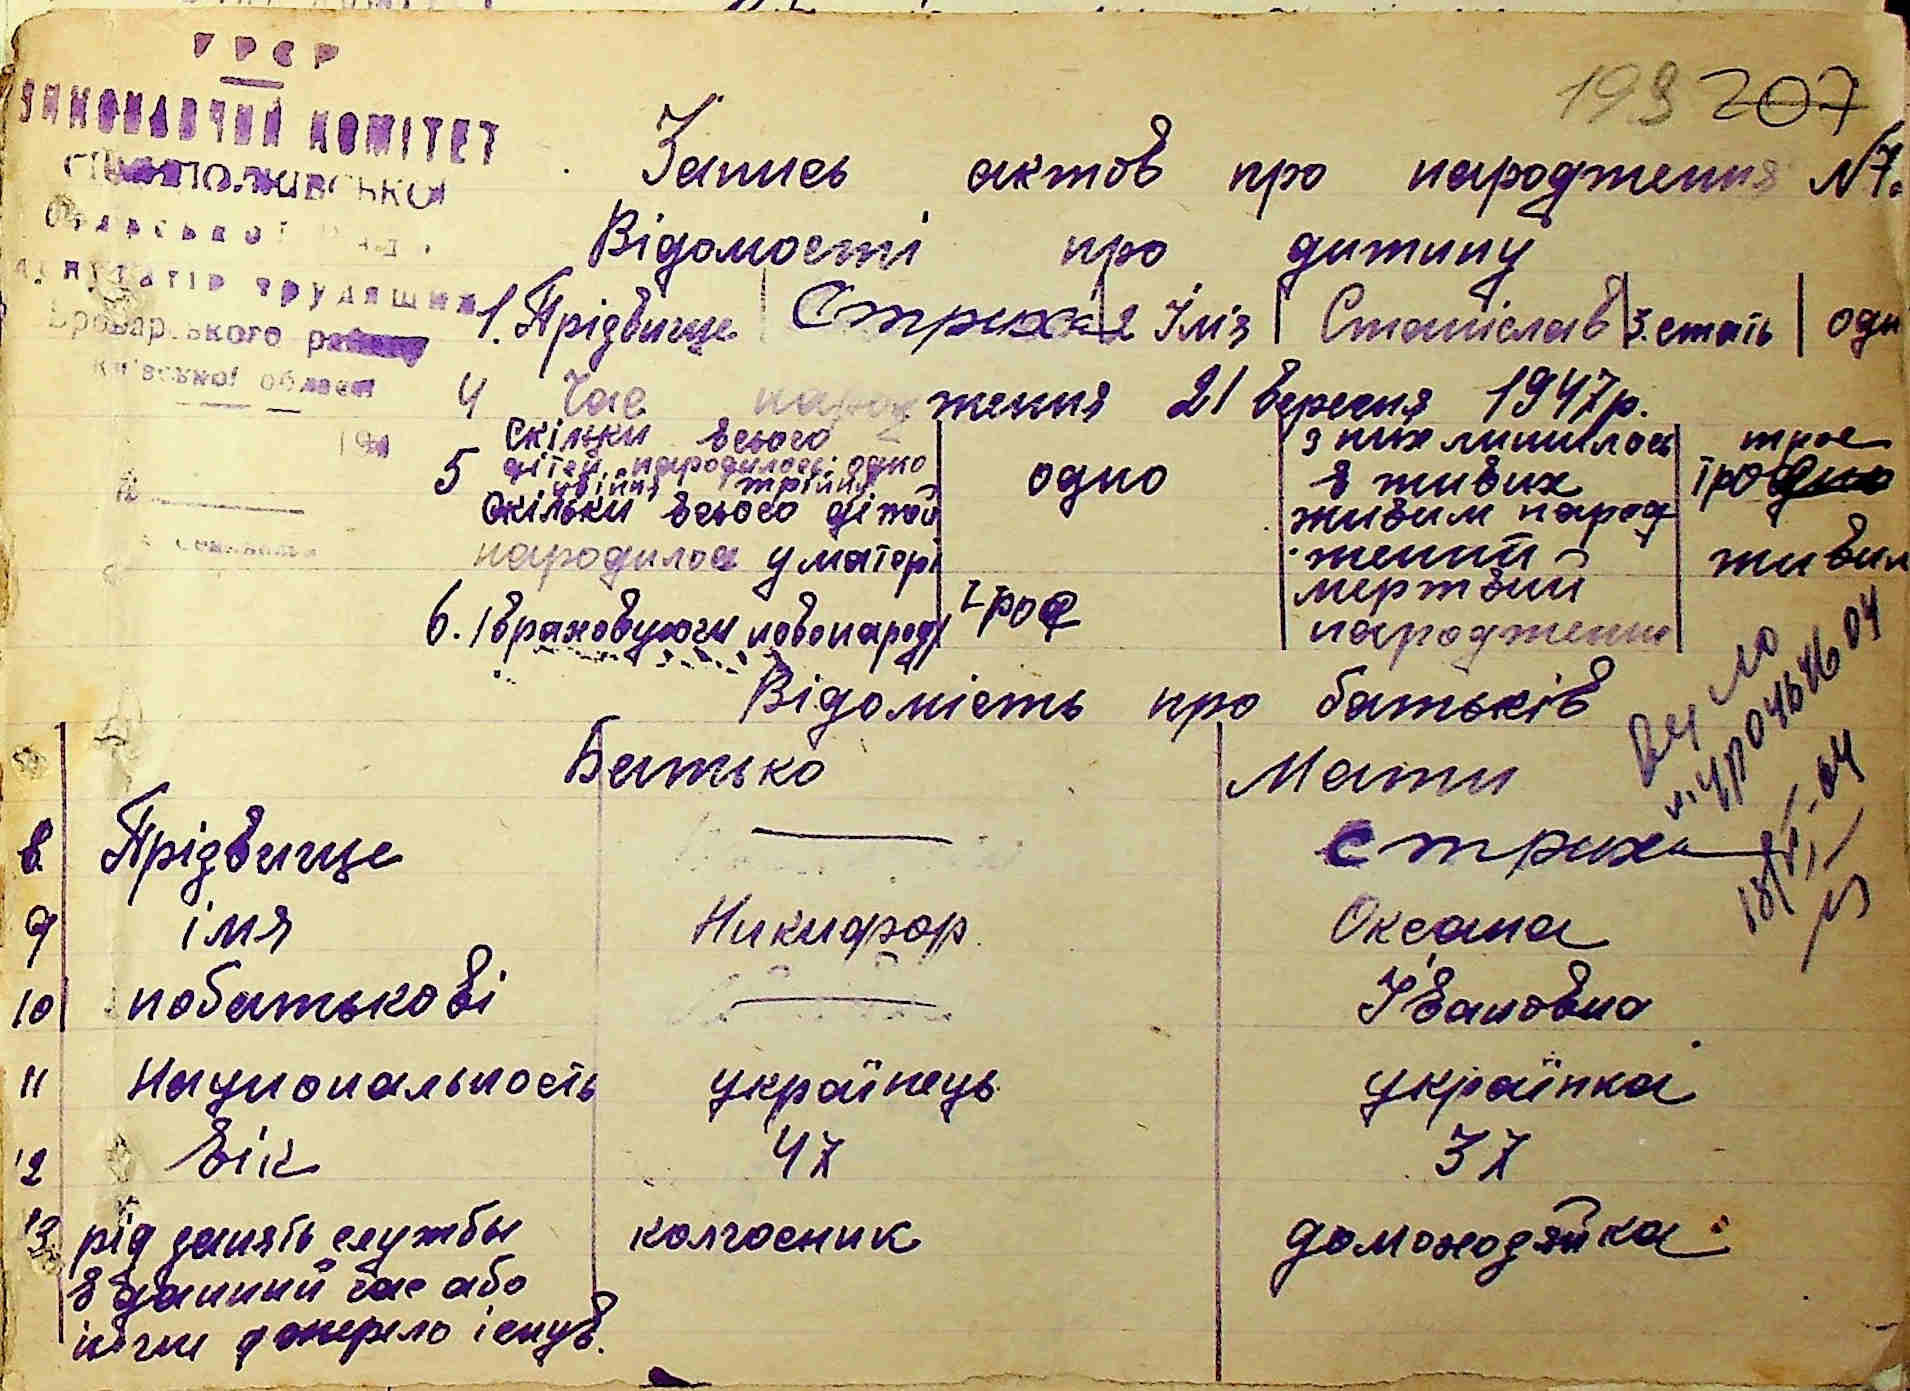 УРСР
ВИКОНАВЧИЙ КОМІТЕТ
депутатів трудящих
Броварського району
Київської області
193 207
Запись актов про народження №7.
Відомості про дитину
1. Прізвище Стриха 2 Імя Станіслав 3. стать одн
4 Час народження 21 вересня 1947р.
5 Скільки всього дітей народилось: одно двійня трійня одно з них лишилось в живих трое
Скільки всього дітей народилоя у матері живим народ жений живим
6. Івраховуючи новонарод трое мертвий народжений
Відомість про батьків
Батько Мати
8 Прізвище — Стриха
9 імя Никифор Оксана
10 побатькові — Івановна
11 Национальность українець українка
12 вік 47 37
13 рід занять службы колгосник домоходяйка
в данний час або
інчие джерело існув.